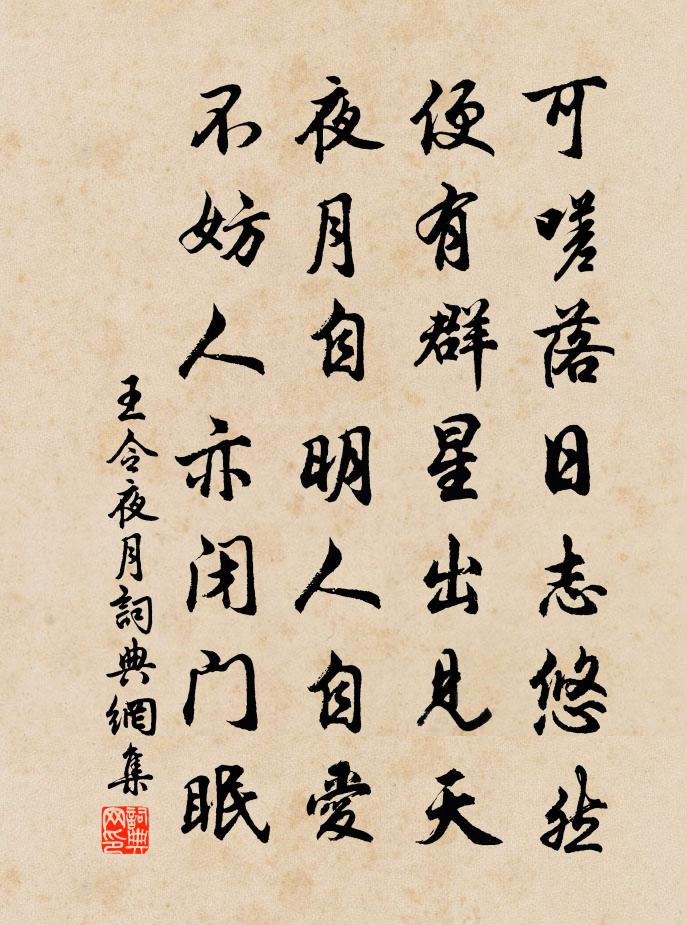 可嗟落日志悠然
便有群星出見天
夜月自明人自愛
不妨人亦闭门眠
王令夜月詞典網集
詞典
网印